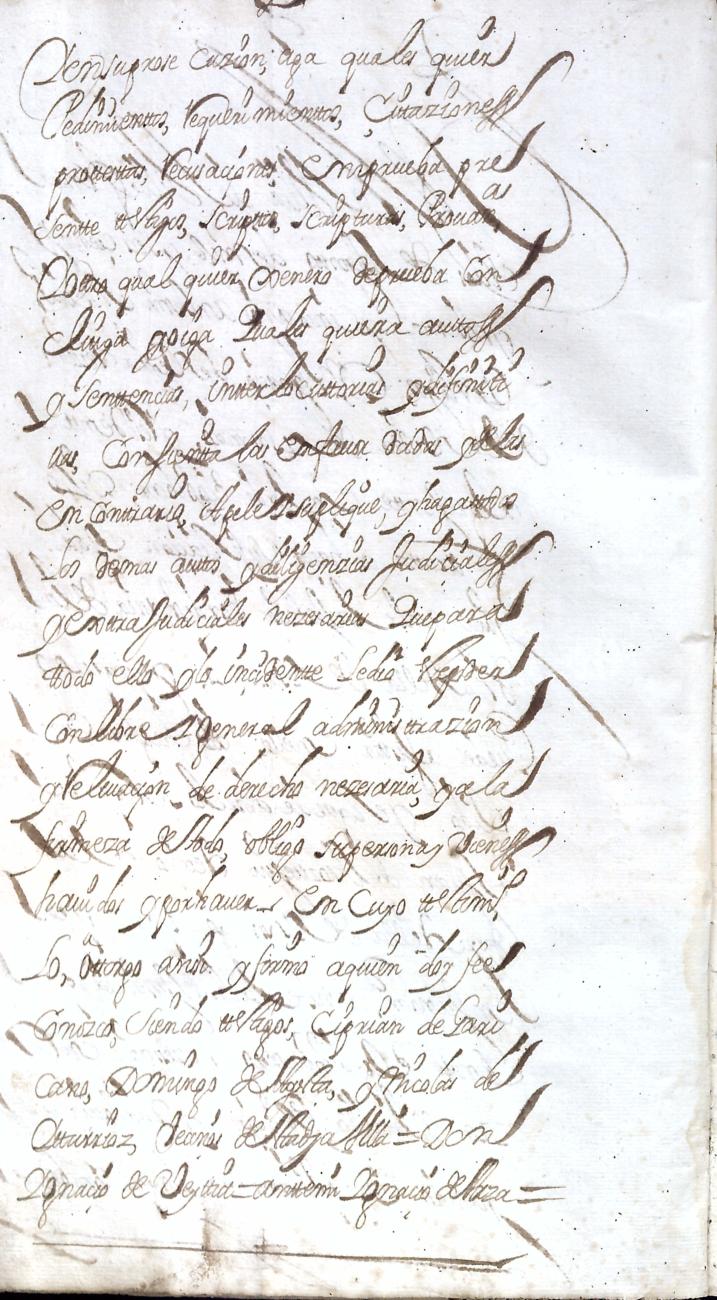 Yensuprose cuzion, aga quales quier
Pedimientos, Requerimientos, Çitaziones
prottestas, Recusaçiones, Emprueba pre
sentte ttestigos, scriptos, scripturas, Prouanças
Y ottro qual quier Xenero deprueba Con
cluiga yoiga Quales quiera auttos
y Senttençias, intterlocuttorias ydifinitti
uas, Consientta las enfauor dadas ydelas
en Conttrario, Apele Y suplique, yhaga ttodos
Los demas auttos ydiligenzias Judiciales
yextraJudiciales nezesarias Quepara
ttodo ello ylo inçidentte Ledio Vepoder
Con libre Y general administtrazion
yReleuaçion, de derecho nezesaria, yala
firmeza de ttodo, obligo supersona y Vienes
hauidos yporhauer_ En Cuyo ttestim.
Lo, Ottorgo ansi yfirmo aquien doy fee
Conozco, siendo ttestigos, Ciprian de Gari
cano, Domingo de Agesta, y Nicolas de
Otturrioz, Veçinos de estadha Villa = Don
Ygnaçio de Veyttia = anttemi Ygnaçio de Arza =